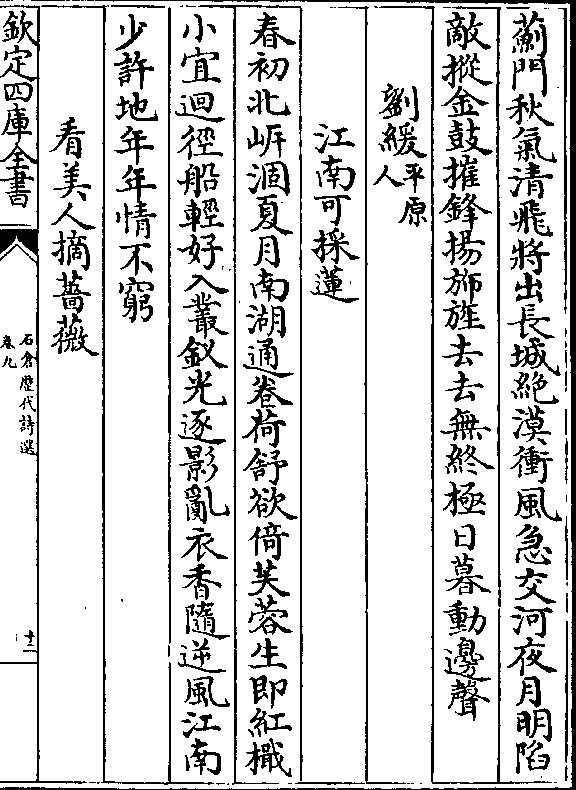 薊門秋氣清飛將出長城絕漠衝風急交河夜月明陷
敵摐金鼓摧鋒揚斾旌去去無終極日暮動邊聲
劉緩平原人
江南可採蓮
春初北岍涸夏月南湖通卷荷舒欲倚芙蓉生即紅檝
小宜迴徑船輕好入叢釵光逐影亂衣香隨逆風江南
少許地年年情不窮
看美人摘薔薇
欽定四庫全書
石倉歷代詩選
卷九
十二